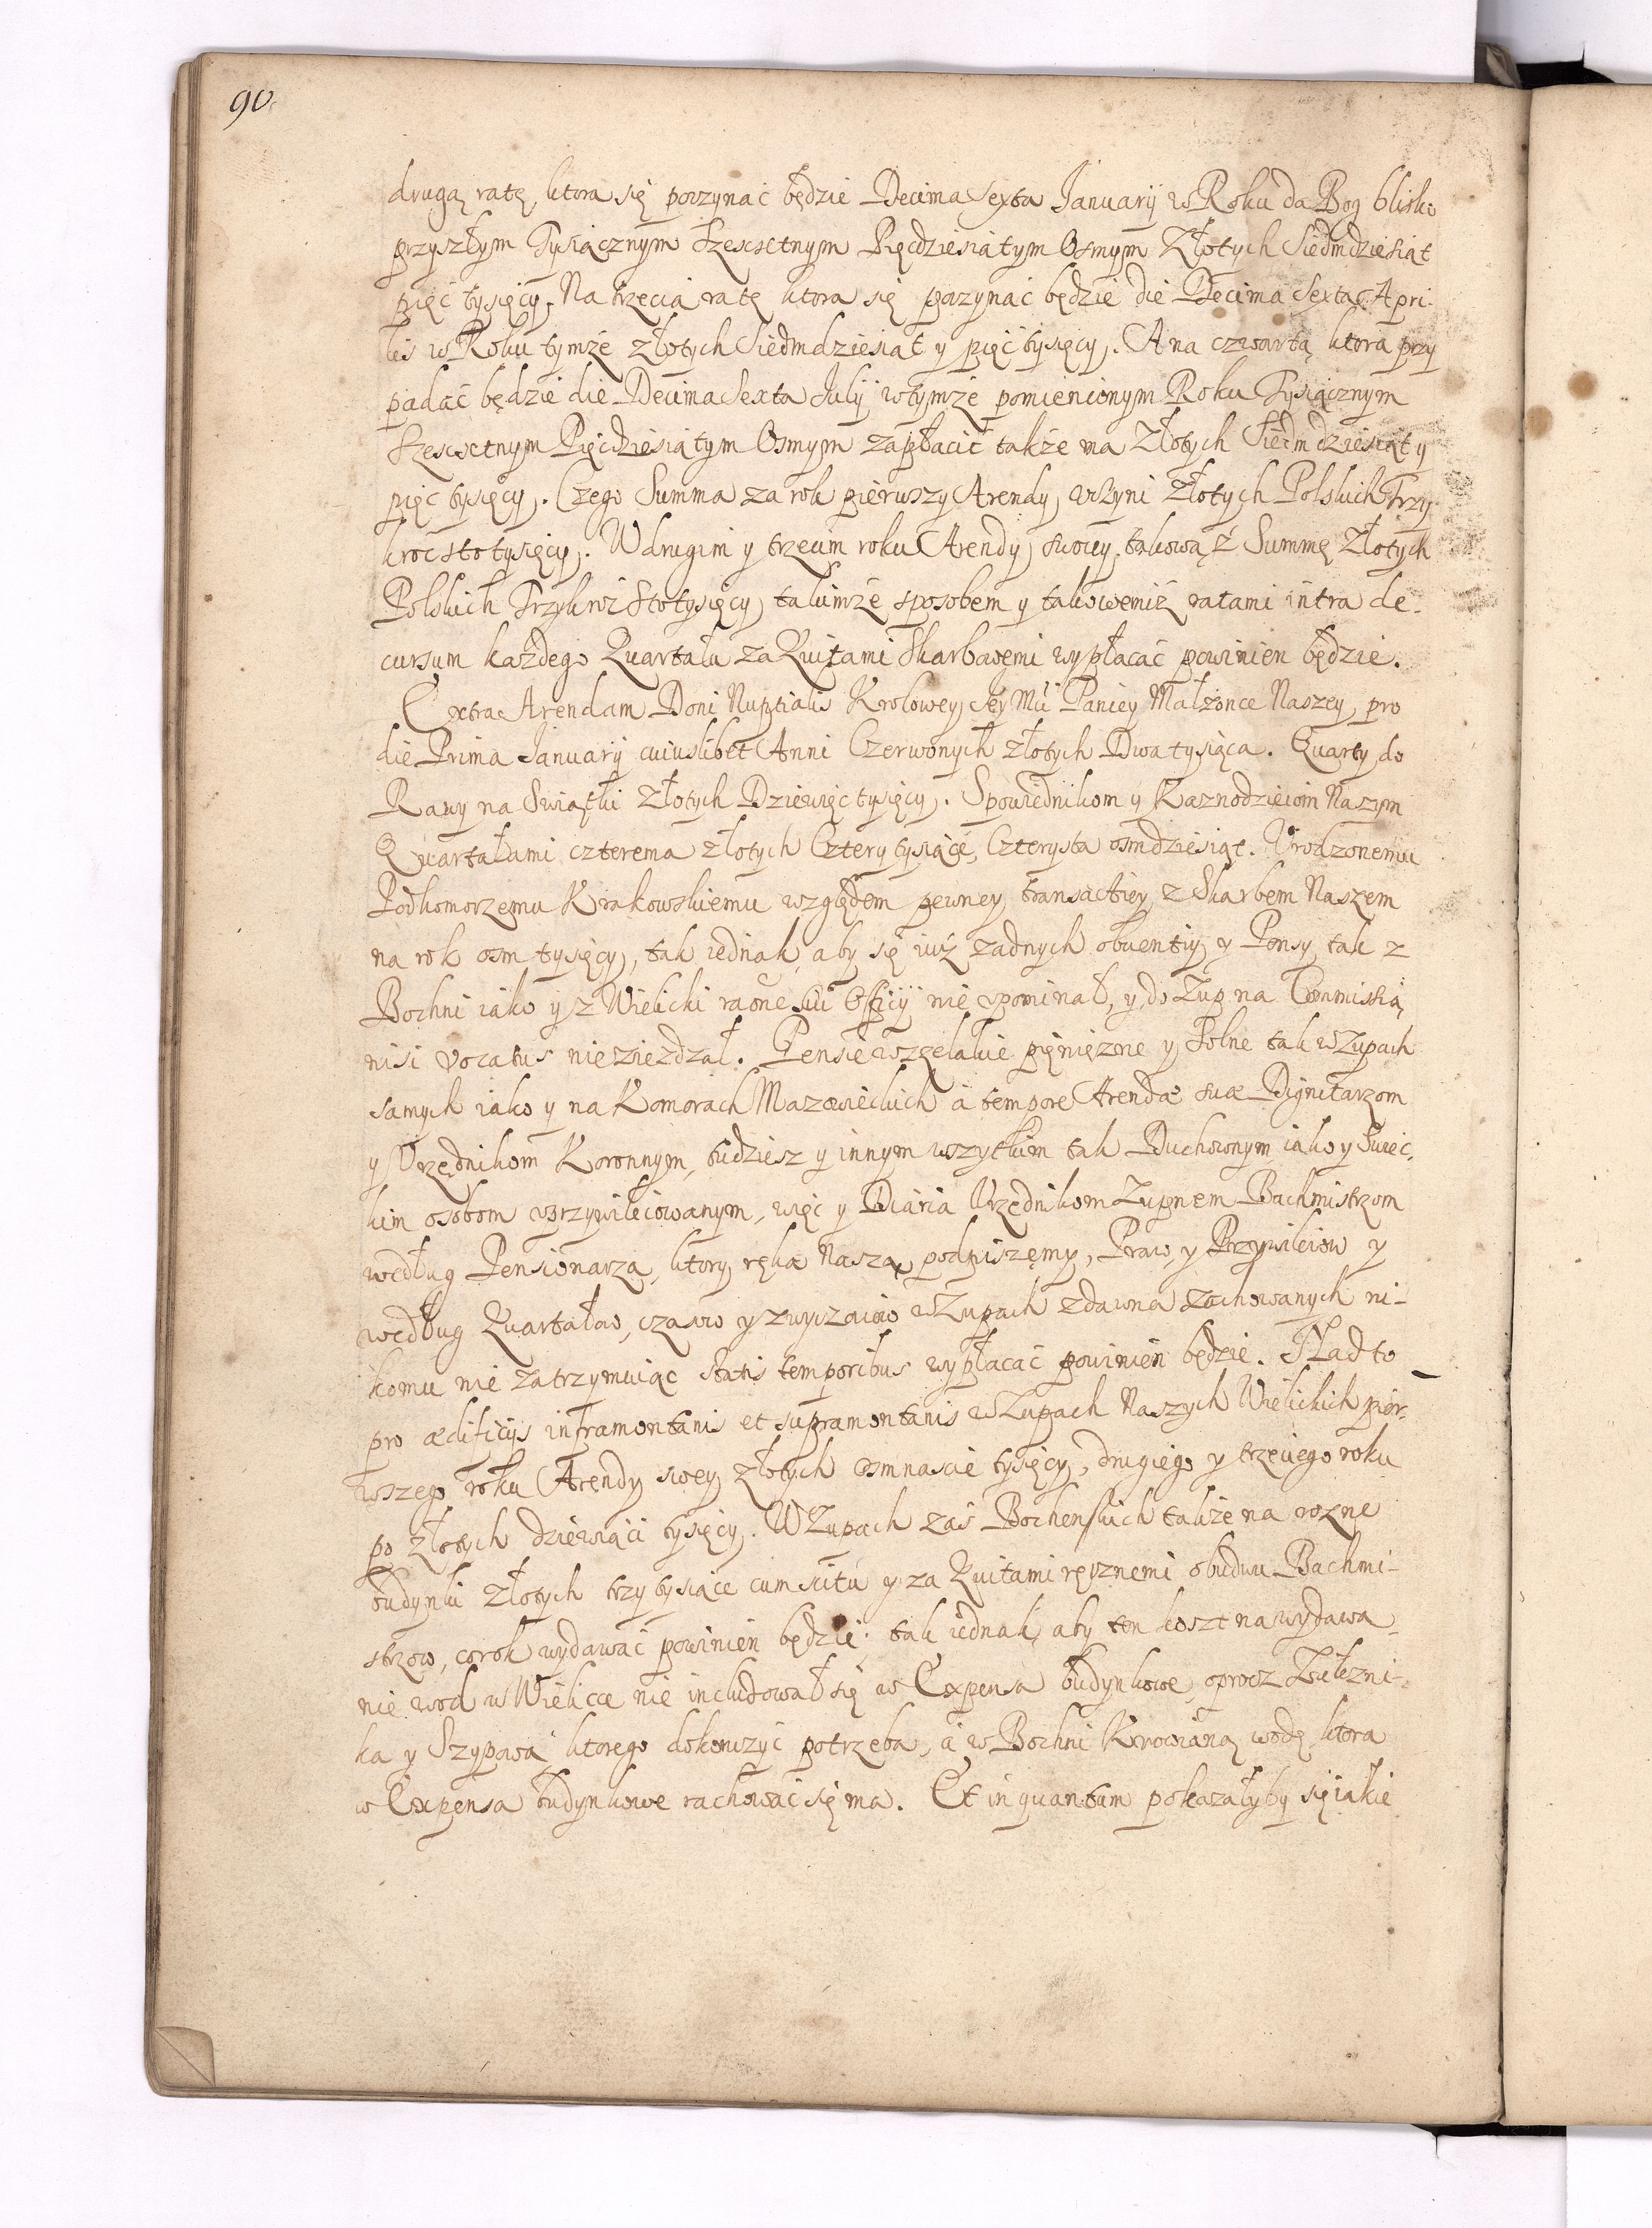 90.
drugą ratę, ktora się poczynać będzie Decima Sexta Januarij w Roku da Bog blisko
przyszłym Tysiącznym Szescsetnym Pięcdziesiątym Osmym Złotych Siedmdziesiąt
pięć tysięcy. Na trzecią ratę ktora się poczynać będzie die Decima Sexta Apri-
lis w Roku tymże złotych Siedmdziesiąt y pięć tysięcy. A na czwartą ktora przy
padać będzie die Decima Sexta Julij w tymże pomienionym Roku Tysiącznym
Szescsetnym Pięcdziesiątym Osmym zapłacić także ma Złotych Siedmdziesiąt y
pięć tysięcy. Czego Summa za rok pierwszy Arendy uczyni Złotych Polskich Trzy
kroć sto tysięcy. W drugim y trzecim roku Arendy swoiey takową ż Summę Złotych
Polskich Trzykroć Sto tysięcy takimże sposobem y takowemiż ratami intra de-
cursum każdego Quartału za Quitami Skarbowemi wypłacać powinien będzie.
Extra Arendam Doni Nuptialis Krolowey Jey Mci Paniey Małżonce Naszey, pro
die Prima Januarij cuiuslibet Anni Czerwonych złotych Dwa tysiąca. Quarty do
Rawy na Swiątki Złotych Dziewięć tysięcy. Spowiednikom y Kaznodzieiom Naszym
Quartałami czterema złotych Cztery tysiące, Czterysta osmdziesiąt. Urodzonemu
Podkomorzemu Krakowskiemu względem pewney transactiey z Skarbem Naszem
na rok osm tysięcy, tak iednak aby się iuż żadnych obuentiy y Pensy tak z
Bochni iako y z Wielicki raõne sui Officij nie upominał, y do Żup na Commissią
nisi vocatus nie zieżdzał. Pensie wszelakie pięniężne y Solne tak w Żupach
samych iako y na Komorach Mazowieckich à tempore Arendæ suæ Dignitarzom
y Urzędnikom Koronnym, tudziesz y innym wszytkim tak Duchownym iako y Swiec,
kim osobom uprzywileiowanym, więc y Diaria Urzędnikom Żupnem Bachmistrzom
według Pensionarza, ktory ręką Naszą podpiszemy, Praw, y Przywileiow y
według Quartałow, czasow y zwyczaiow w Żupach zdawna zachowanych ni-
komu nie zatrzymuiąc statis temporibus wypłacać powinien będzie. Nad to
pro ædificijs inframontanis et supramontanis w Żupach Naszych Wielickich pier-
wszego roku Arendy swey złotych osmnascie tysięcy, drugiego y trzeciego roku
po złotych dziewiąci tysięcy. W Żupach zaś Bochenskich także na rożne
budynki złotych trzy tysiące cum scitu y za Quitami ręcznemi obudwu Bachmi-
strzow, co rok wydawać powinien będzie; tak iednak, aby ten koszt na wydawa-
nie wod w Wielicce nie includował się w Expensa budynkowe, oprocz Zulezni-
ka y Szypawa ktorego dokonczyć potrzeba, a w Bochni Krowianą wodę ktora
w Expensa budynkowe rachować się ma. Et in quantum pokazałyby się iakie